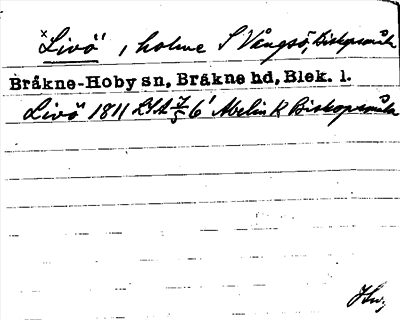 × "Livö", holme S Vångsö, Biskopsmåla
Bråkne-Hoby sn, Bråkne hd, Blek. l.
Livö 1811 LSA 7/5 6' Abelin K Biskopsmåla